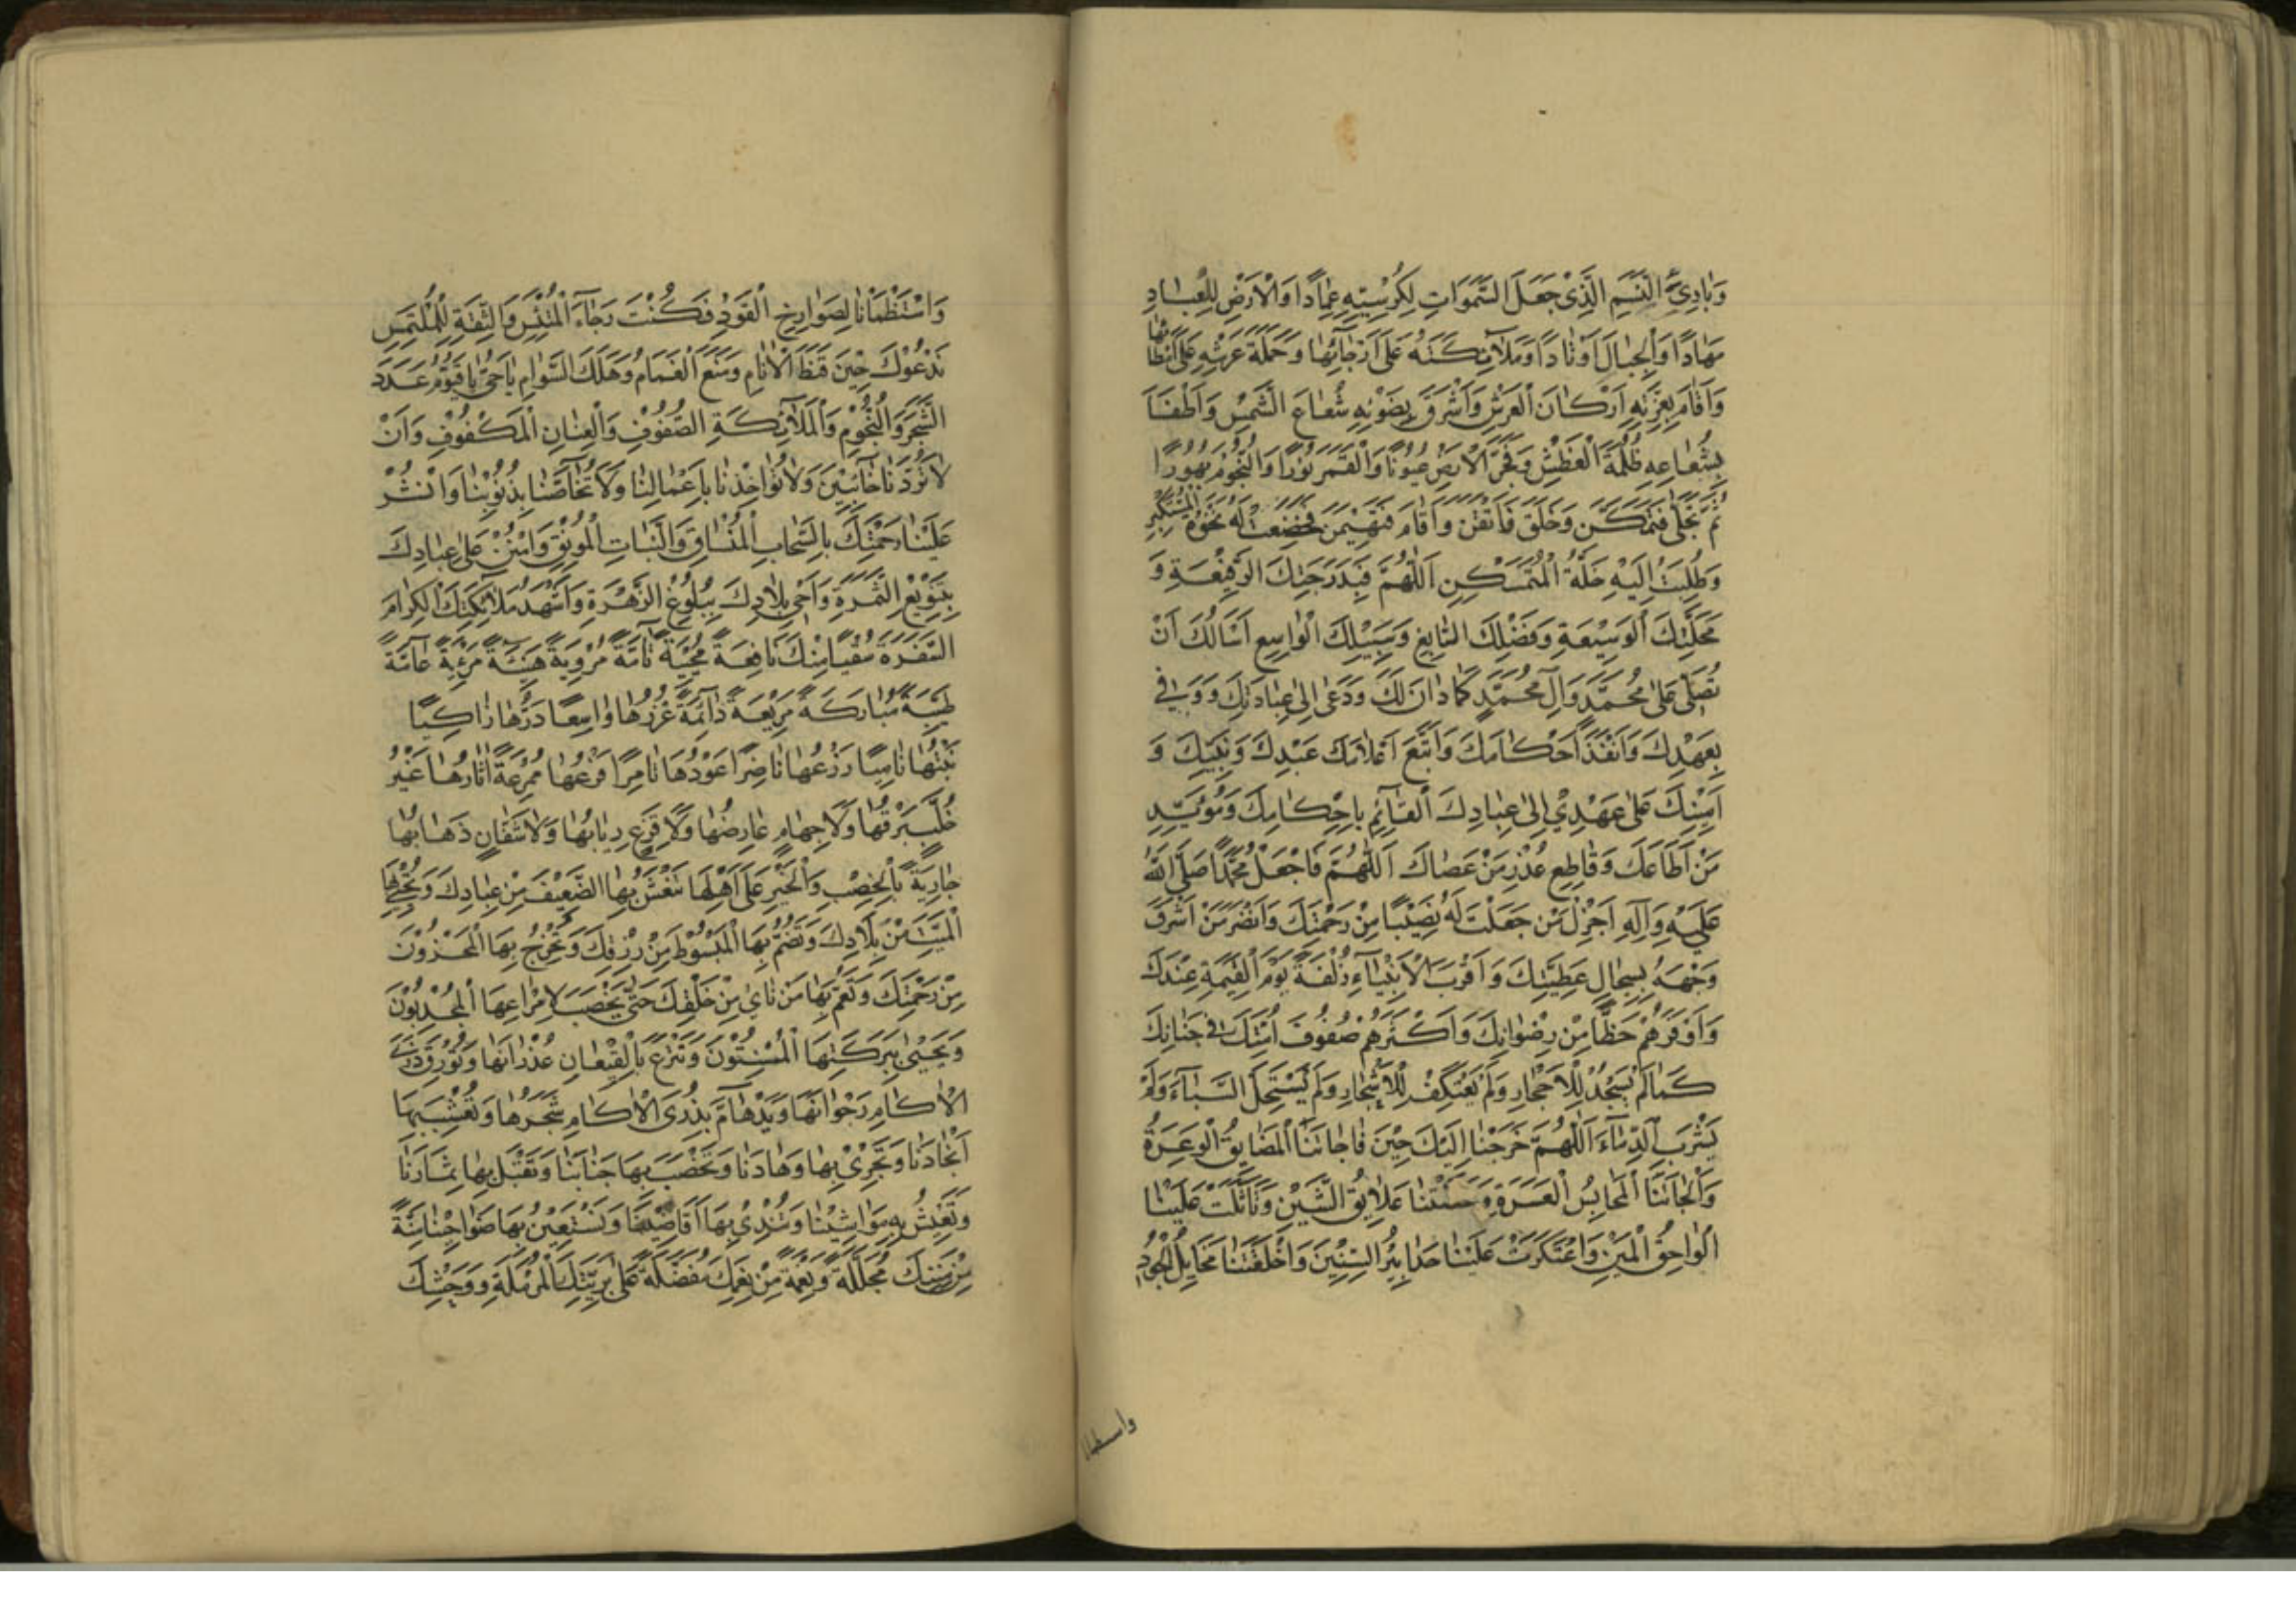 وَبَارِئِ النَّسَمِ الَّذِي جَعَلَ السَّمٰوَاتِ لِكُرْسِيِّهِ عِمَادًا وَالْاَرْضَ لِلْعِبَادِ
مِهَادًا وَالْجِبَالَ اَوْتَادًا وَمَلَآئِكَتَهُ عَلَى اَرْجَآئِهَا وَحَمَلَةَ عَرْشِهِ عَلَى اَمْطَائِهَا
وَاَقَامَ بِعِزَّتِهِ اَرْكَانَ الْعَرْشِ وَاَشْرَقَ بِضَوْئِهِ شُعَاعَ الشَّمْسِ وَاَطْفَأَ
بِشُعَاعِهِ ظُلْمَةَ الْغَطْشِ وَفَجَّرَ الْاَرْضَ عُيُونًا وَالْقَمَرَ نُورًا وَالنُّجُومَ بُهُورًا
ثُمَّ تَجَلّٰى فَتَمَكَّنَ وَخَلَقَ فَاَتْقَنَ وَاَقَامَ فَتَهَيْمَنَ فَخَضَعَتْ لَهُ نَخْوَةُ الْمُسْتَكْبِرِ
وَطُلِبَتْ اِلَيْهِ خَلَّةُ الْمُتَمَسْكِنِ اَللّٰهُمَّ فَبِدَرَجَتِكَ الرَّفِيْعَةِ وَ
مَحَلَّتِكَ الْوَسِيْعَةِ وَفَضْلِكَ السَّابِغِ وَسَبِيْلِكَ الْوَاسِعِ اَسْاَلُكَ اَنْ
تُصَلِّيَ عَلٰى مُحَمَّدٍ وَآلِ مُحَمَّدٍ كَمَا دَانَ لَكَ وَدَعٰى اِلٰى عِبَادَتِكَ وَوَفٰى
بِعَهْدِكَ وَاَنْفَذَ اَحْكَامَكَ وَاتَّبَعَ اَعْلَامَكَ عَبْدِكَ وَنَبِيِّكَ وَ
اَمِيْنِكَ عَلٰى عَهْدِكَ اِلٰى عِبَادِكَ الْقَآئِمِ بِاَحْكَامِكَ وَمُؤَيِّدِ
مَنْ اَطَاعَكَ وَقَاطِعِ عُذْرِ مَنْ عَصَاكَ اَللّٰهُمَّ فَاجْعَلْ مُحَمَّدًا صَلَّى اللهُ
عَلَيْهِ وَآلِهِ اَجْزَلَ مَنْ جَعَلْتَ لَهُ نَصِيْبًا مِنْ رَحْمَتِكَ وَاَنْضَرَ مَنْ اَشْرَقَ
وَجْهُهُ بِسِجَالِ عَطِيَّتِكَ وَاَقْرَبَ الْاَنْبِيَآءِ زُلْفَةً يَوْمَ الْقِيٰمَةِ عِنْدَكَ
وَاَوْفَرَهُمْ حَظًّا مِنْ رِضْوَانِكَ وَاَكْثَرَهُمْ صُفُوفَ اُمَّتِكَ فِي جَنَانِكَ
كَمَا لَمْ يَسْجُدْ لِلْاَحْجَارِ وَلَمْ يَعْتَكِفْ لِلْاَشْجَارِ وَلَمْ يَسْتَحِلَّ السِّبَآءَ وَلَمْ
يَشْرَبِ الدِّمَآءَ اَللّٰهُمَّ خَرَجْنَا اِلَيْكَ حِيْنَ فَاجَاَتْنَا الْمَضَايِقُ الْوَعِرَةُ
وَاَلْجَاَتْنَا الْمَحَابِسُ الْعَسِرَةُ وَعَضَّتْنَا عَلَايِقُ الشَّيْنِ وَتَاَثَّلَتْ عَلَيْنَا
لَوَاحِقُ الْمَيْنِ وَاعْتَكَرَتْ عَلَيْنَا حَدَابِيْرُ السِّنِيْنَ وَاَخْلَفَتْنَا مَخَايِلُ الْجُوْدِ
واستظمأنا
وَاسْتَظْمَاْنَا لِصَوَارِخِ الْقَوْدِ فَكُنْتَ رَجَآءَ الْمُبْتَئِسِ وَالثِّقَةِ لِلْمُلْتَمِسِ
نَدْعُوْكَ حِيْنَ قَنَطَ الْاَنَامُ وَمُنِعَ الْغَمَامُ وَهَلَكَ السَّوَامُ يَا حَيُّ يَا قَيُّوْمُ عَدَدَ
الشَّجَرِ وَالنُّجُوْمِ وَالْمَلَآئِكَةِ الصُّفُوْفِ وَالْعِنَانِ الْمَكْفُوْفِ وَاَنْ
لَا تَرُدَّنَا خَآئِبِيْنَ وَلَا تُؤَاخِذَنَا بِاَعْمَالِنَا وَلَا تُخَآصَّنَا بِذُنُوْبِنَا وَانْشُرْ
عَلَيْنَا رَحْمَتَكَ بِالسَّحَابِ الْمُنْسَاقِ وَالنَّبَاتِ الْمُوْنِقِ وَامْنُنْ عَلٰى عِبَادِكَ
بِتَنْوِيْعِ الثَّمَرَةِ وَاَحْيِ بِلَادَكَ بِبُلُوْغِ الزَّهَرَةِ وَاَشْهِدْ مَلَآئِكَتَكَ الْكِرَامَ
السَّفَرَةَ سُقْيَا مِنْكَ نَافِعَةً مُحْيِيَةً تَآمَّةً مُرْوِيَةً هَنِيْئَةً مَرِيْئَةً عَآمَّةً
طَيِّبَةً مُبَارَكَةً مَرِيْعَةً دَآئِمَةً غُزْرُهَا وَاسِعًا دَرُّهَا زَاكِيًا
نَبْتُهَا نَامِيًا زَرْعُهَا نَاضِرًا عَوْدُهَا ثَامِرًا فَرْعُهَا مُمْرِعَةً اٰثَارُهَا غَيْرُ
خُلَّبٍ بَرْقُهَا وَلَا جِهَامٍ عَارِضُهَا وَلَا قَزَعٍ رَبَابُهَا وَلَا شَفَّانٍ ذَهَابُهَا
جَارِيَةً بِالْخِصْبِ وَالْخَيْرِ عَلٰى اَهْلِهَا تَنْعَشُ بِهَا الضَّعِيْفَ مِنْ عِبَادِكَ وَتُحْيِي بِهَا
الْمَيِّتَ مِنْ بِلَادِكَ وَتَضُمُّ بِهَا الْمَبْسُوْطَ مِنْ رِزْقِكَ وَتُخْرِجُ بِهَا الْمَخْزُوْنَ
مِنْ رَحْمَتِكَ وَتَعُمُّ بِهَا مَنْ نَاٰى مِنْ خَلْقِكَ حَتّٰى يَخْصَبَ لِاِمْرَاعِهَا الْمُجْدِبُوْنَ
وَيَحْيٰى بِبَرَكَتِهَا الْمُسْنِتُوْنَ وَتَتْرَعُ بِالْقِيْعَانِ غُدْرَانُهَا وَتُوْرِقُ ذُرَى
الْاٰكَامِ رَجَوَاتُهَا وَيَدْهَآمُّ بِذُرَى الْاٰكَامِ شَجَرُهَا وَتُعْشِبُ بِهَا
اَنْجَادُنَا وَتَجْرِيْ بِهَا وِهَادُنَا وَتَخْصَبُ بِهَا جَنَابُنَا وَتَقْبَلُ بِهَا ثِمَارُنَا
وَتَعِيْشُ بِهَا مَوَاشِيْنَا وَتَنْدٰى بِهَا اَقَاصِيْنَا وَتَسْتَعِيْنُ بِهَا ضَوَاحِيْنَا مِنَّةً
مِنْ مِنَنِكَ مُجَلِّلَةً وَنِعْمَةً مِنْ نِعَمِكَ مُفْضَلَةً عَلٰى بَرِيَّتِكَ الْمُرْمَلَةِ وَوَحْشِكَ